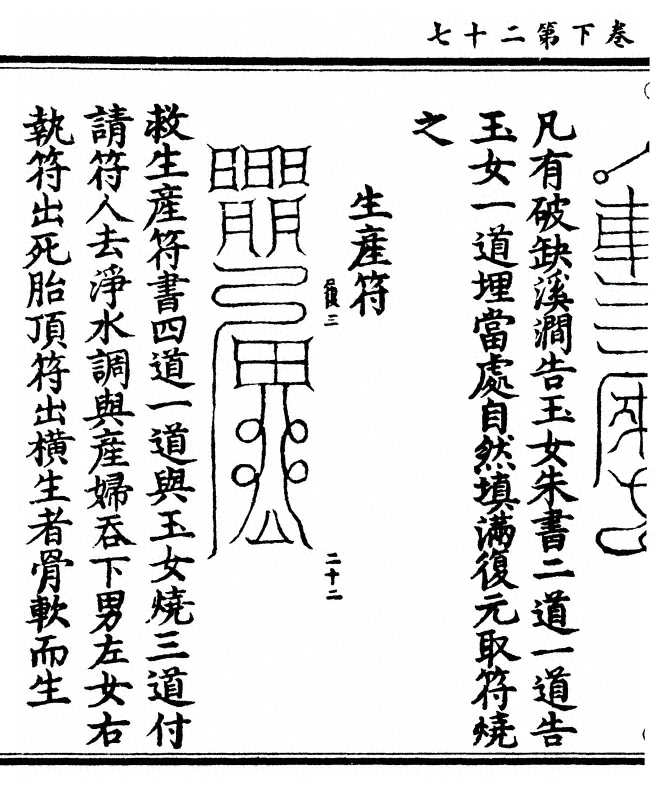 卷下第二十七
凡有破缺溪澗告玉女朱書二道一道告
玉女一道埋當處自然填滿復元取符燒
之
生產符
三
二十二
救生產符書四道一道與玉女燒三道付
請符人去淨水調與產婦吞下男左女右
執符出死胎頂符出橫生者骨軟而生